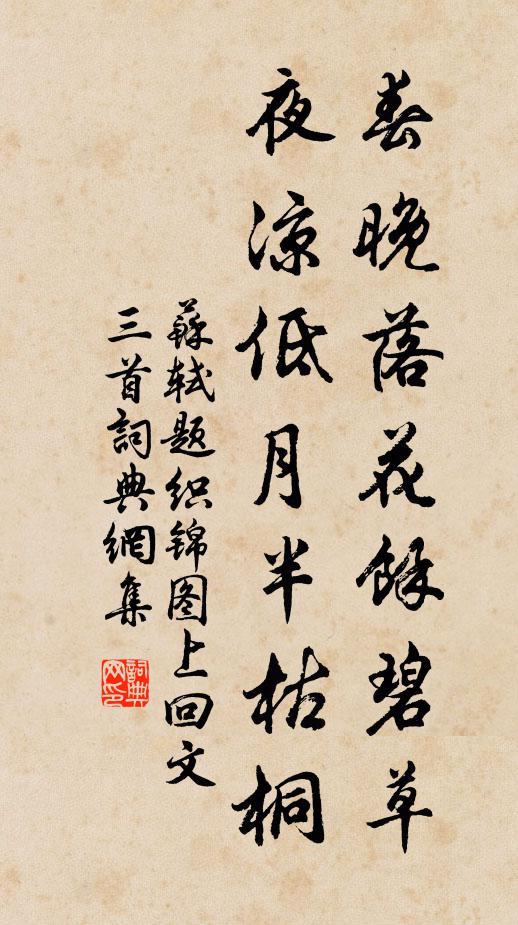 春晚落花餘碧草
夜凉低月半枯桐
蘇軾题织锦图上回文
三首詞典網集
詞典网印